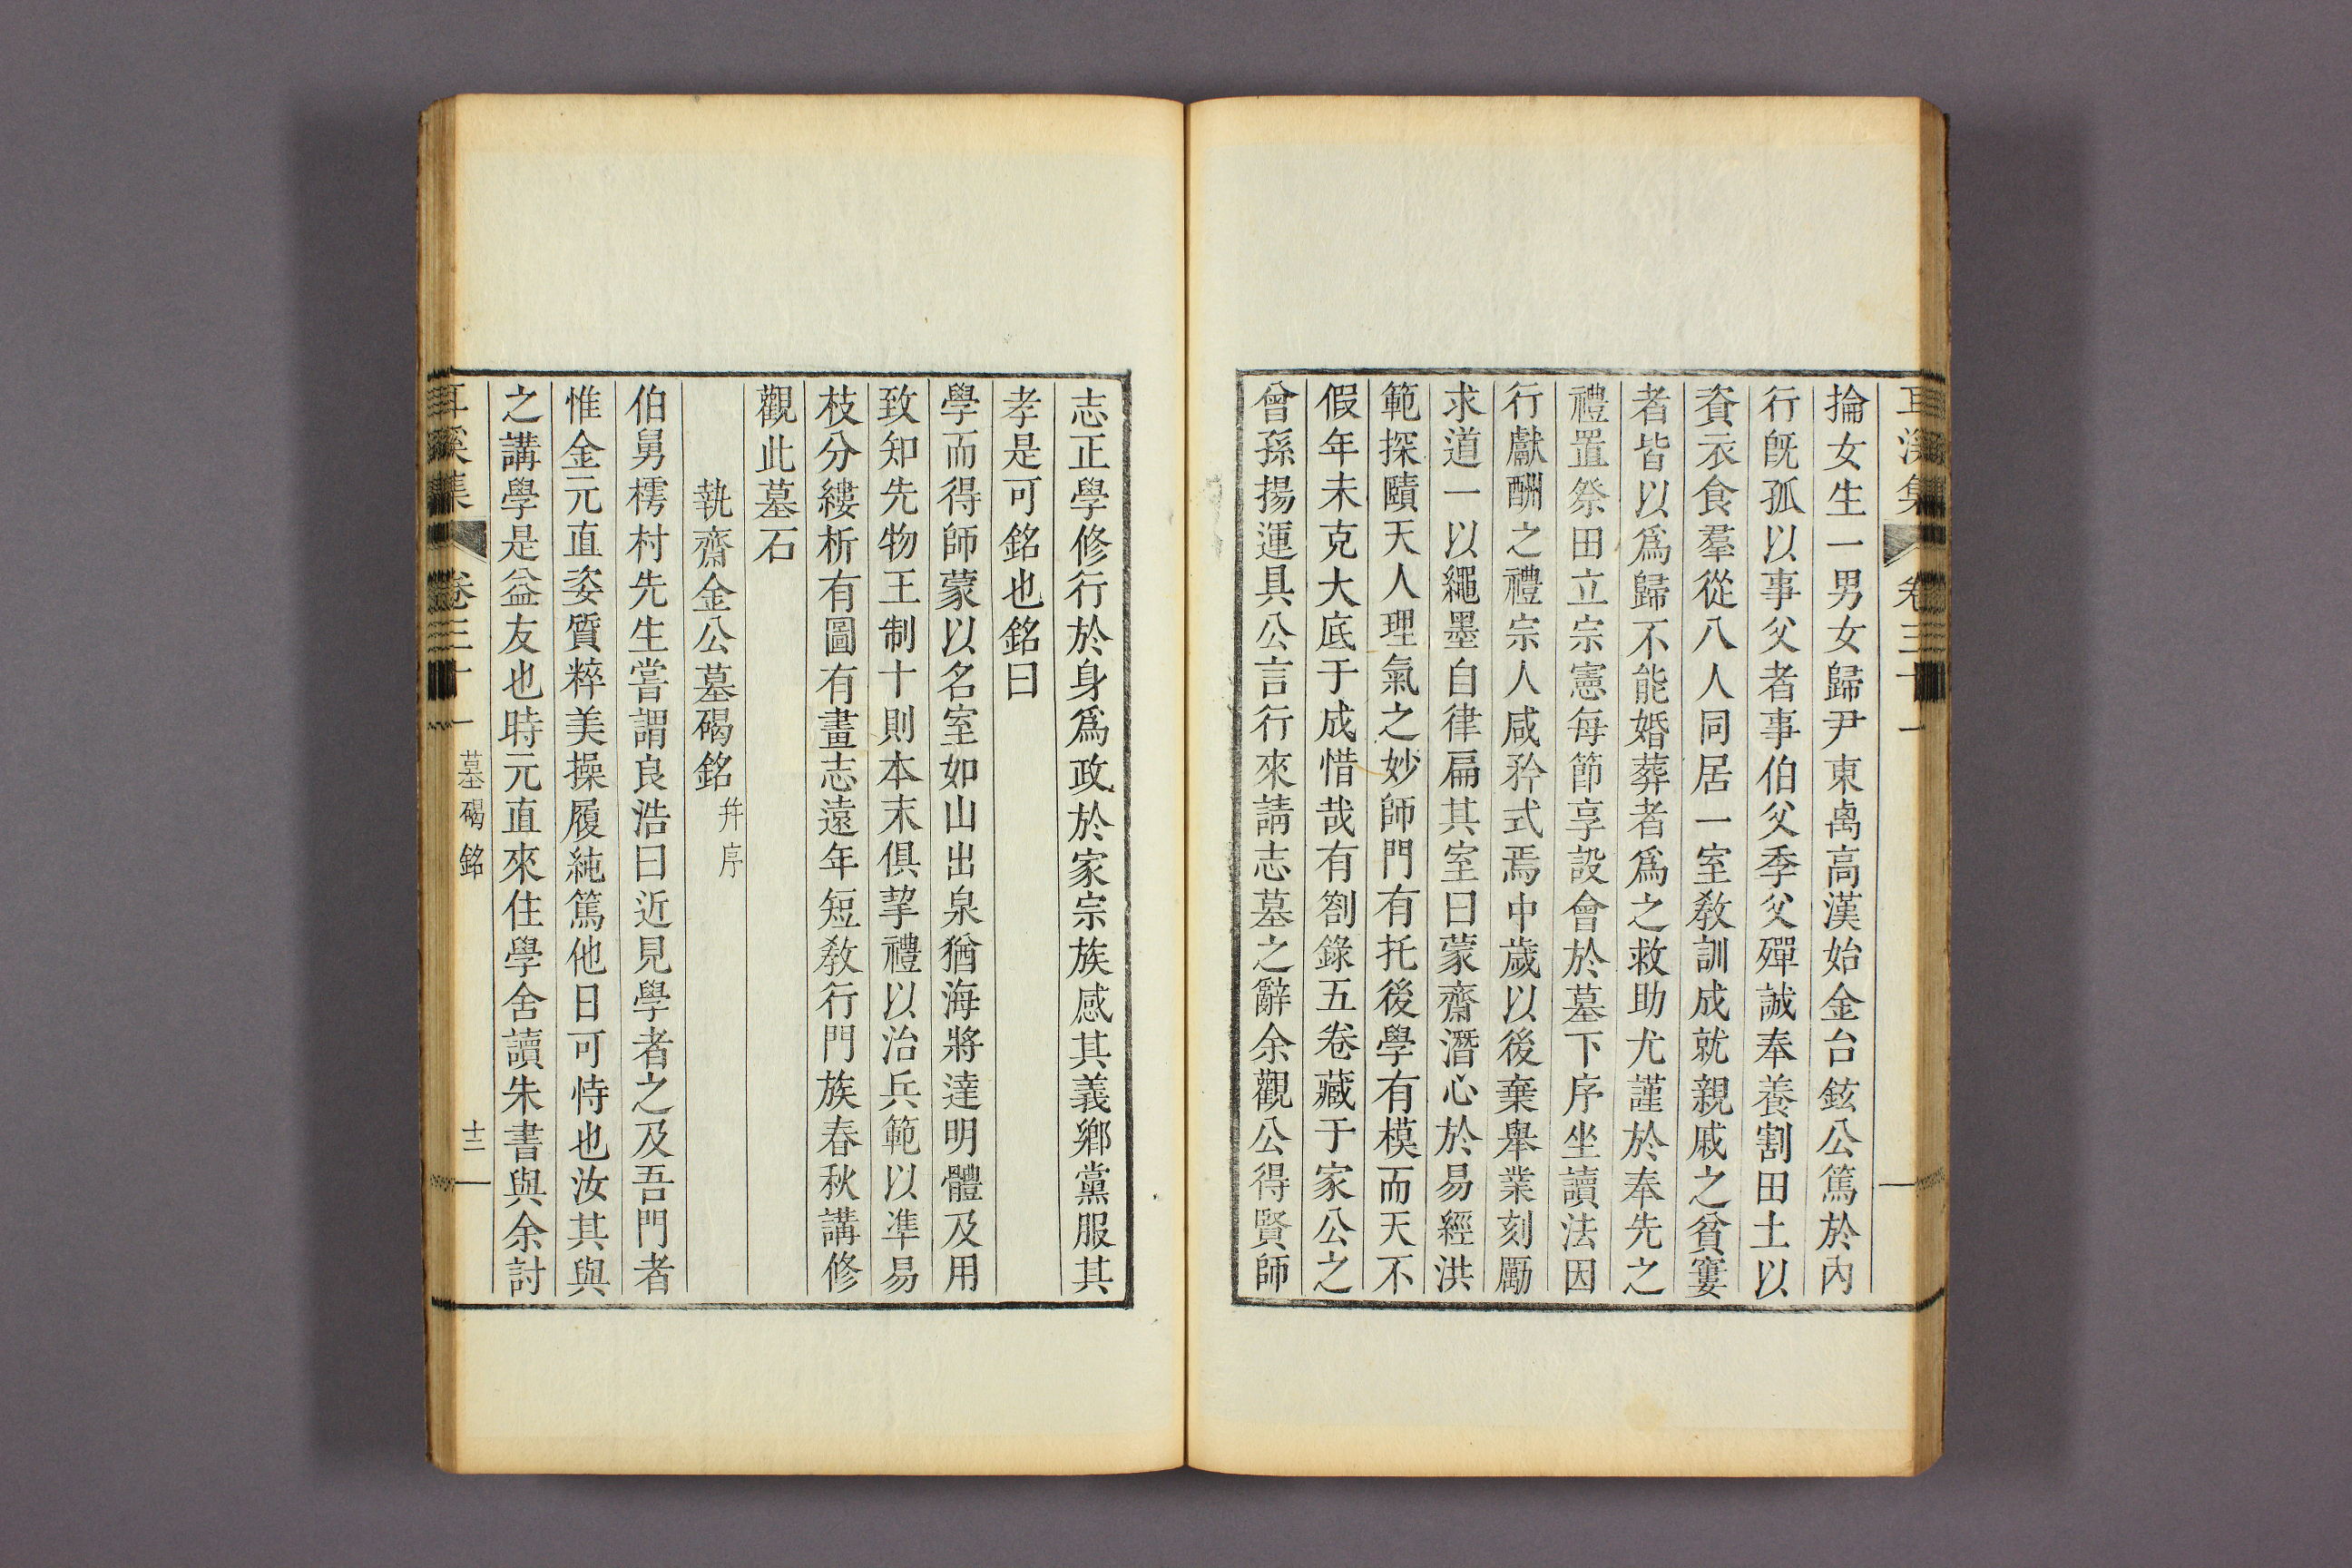 耳溪集 卷三十一
掄女生一男女歸尹東卨高漢始金台鉉公篤於內
行旣孤以事父者事伯父季父殫誠奉養割田土以
資衣食羣從八人同居一室敎訓成就親戚之貧窶
者皆以爲歸不能婚葬者爲之救助尤謹於奉先之
禮置祭田立宗憲每節享設會於墓下序坐讀法因
行獻酬之禮宗人咸矜式焉中歲以後棄擧業刻勵
求道一以繩墨自律扁其室曰蒙齋潛心於易經洪
範探賾天人理氣之妙師門有托後學有模而天不
假年未克大底于成惜哉有劄錄五卷藏于家公之
曾孫揚運具公言行來請志墓之辭余觀公得賢師
志正學修行於身爲政於家宗族感其義鄕黨服其
孝是可銘也銘曰
學而得師蒙以名室如山出泉猶海將達明體及用
致知先物王制十則本末俱挈禮以治兵範以準易
枝分縷析有圖有畫志遠年短敎行門族春秋講修
觀此墓石
執齋金公墓碣銘 幷序
伯舅樗村先生嘗謂良浩曰近見學者之及吾門者
惟金元直姿質粹美操履純篤他日可恃也汝其與
之講學是益友也時元直來住學舍讀朱書與余討
耳溪集 卷三十一 墓碣銘 十二